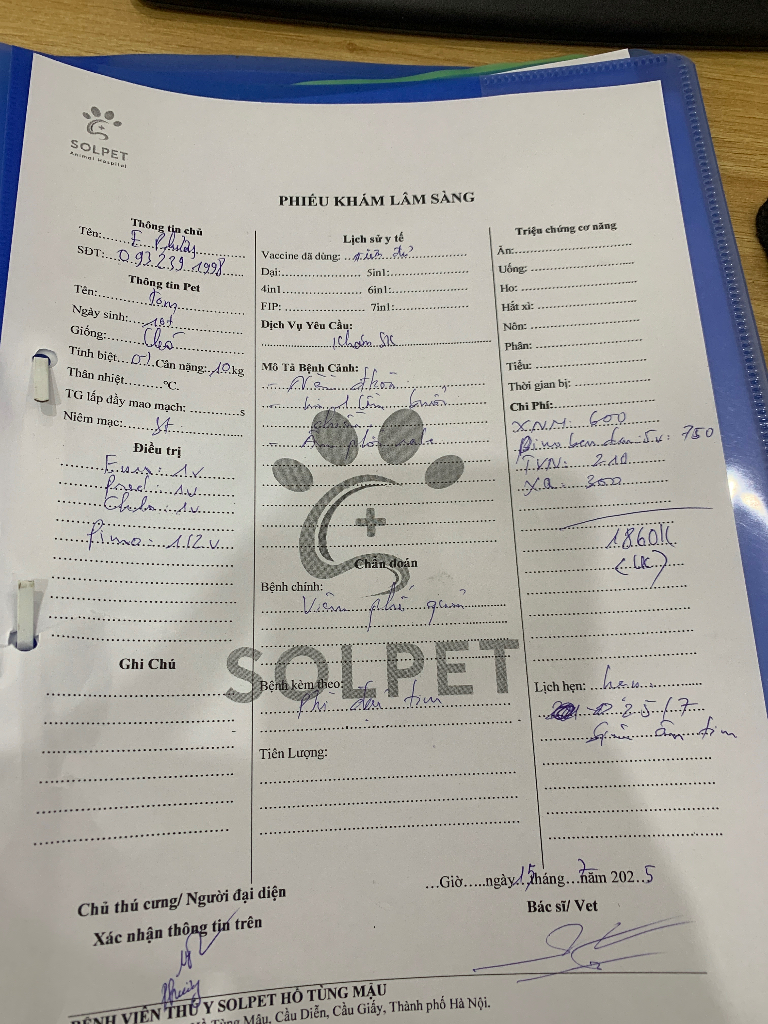 SOLPET
Animal Hospital
PHIẾU KHÁM LÂM SÀNG
Thông tin chủ
Tên: E Phương
SĐT: 093 239 1998
Thông tin Pet
Tên: Tôm
Ngày sinh: 10t
Giống: Chó
Tính biệt Cân nặng: 10 kg
Thân nhiệt ℃.
TG lấp đầy mao mạch: s
Niêm mạc:
Điều trị
: 1v
Pred: 1v
: 1v
Pimo: 1/2 v
Ghi Chú
Lịch sử y tế
Vaccine đã dùng:
Dại: 5in1:
4in1 6in1:
FIP: 7in1:
Dịch Vụ Yêu Cầu:
Khám SK
Mô Tả Bệnh Cảnh:
-
-
- Âm phổi
Chẩn đoán
Bệnh chính:
Viêm phế quản
SOLPET
Bệnh kèm theo:
Phì đại tim
Tiên Lượng:
Triệu chứng cơ năng
Ăn:
Uống:
Ho:
Hắt xì:
Nôn:
Phân:
Tiểu:
Thời gian bị:
Chi Phí:
XNM: 600
5v: 750
TVN: 210
XQ: 300
1860K
(CK)
Lịch hẹn:
25/7
Siêu âm tim
Chủ thú cưng/ Người đại diện
Xác nhận thông tin trên
…Giờ…..ngày 15 tháng 7 năm 2025
Bác sĩ/ Vet
BỆNH VIỆN THÚ Y SOLPET HỒ TÙNG MẬU
Hồ Tùng Mậu, Cầu Diễn, Cầu Giấy, Thành phố Hà Nội.